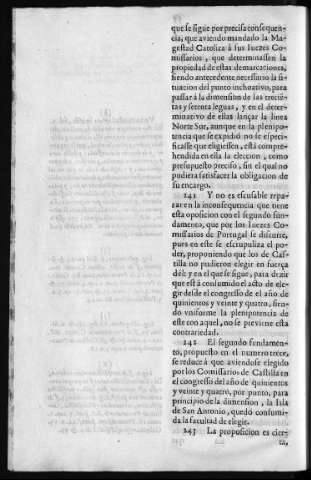 que se sigue por precisa consequen-
cia, que aviendo mandado la Ma-
gestad Catolica à sus Iuezes Co-
missarios, que determinassen la
propiedad de estas demarcaciones,
siendo antecedente necessario la si-
tuacion del punto inchoativo, para
passar à la dimension de las trecien-
tas y setenta leguas, y en el deter-
minativo de ellas lançar la linea
Norte Sur, aunque en la plenipo-
tencia que se expidiò no se especi-
ficasse que eligiessen, està compre-
hendida en ella la eleccion, como
presupuesto preciso, sin el qual no
pudiera satisfacer la obligacion de
su encargo.
241 Y no es escusable repa-
rar en la inconsequencia que tiene
esta oposicion con el segundo fun-
damento, que por los Iuezes Co-
missarios de Portugal se discurre,
pues en este se escrupuliza el po-
der, proponiendo que los de Cas-
tilla no pudieron elegir en fuerça
dèl: y en el que se sigue, para dezir
que està consumido el acto de ele-
gir desde el congresso de el año de
quinientos y veinte y quatro, sien-
do vniforme la plenipotencia de
este con aquel, no se previene esta
contrariedad.
242 El segundo fundamen-
to, propuesto en el numero treze,
se reduce à que aviendose elegido
por los Comissarios de Castilla en
el congresso del año de quinientos
y veinte y quatro, por punto, para
principio de la dimension, la Isla
de San Antonio, quedò consumi-
da la facultad de elegir.
243 La proposicion es cier-
ta,